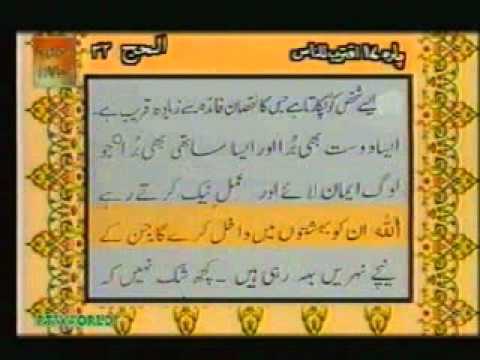 الحج ۲۲
پارہ ۱۷ اقترب للناس
ایسے شخص کو پکارتا ہے جس کا نقصان فائدہ سے زیادہ قریب ہے۔
ایسا دوست بھی بُرا اور ایسا ساتھی بھی بُرا جو
لوگ ایمان لائے اور عمل نیک کرتے رہے
اللہ ان کو بہشتوں میں داخل کرے گا جن کے
نیچے نہریں بہہ رہی ہیں ۔ کچھ شک نہیں کہ
PTV WORLD